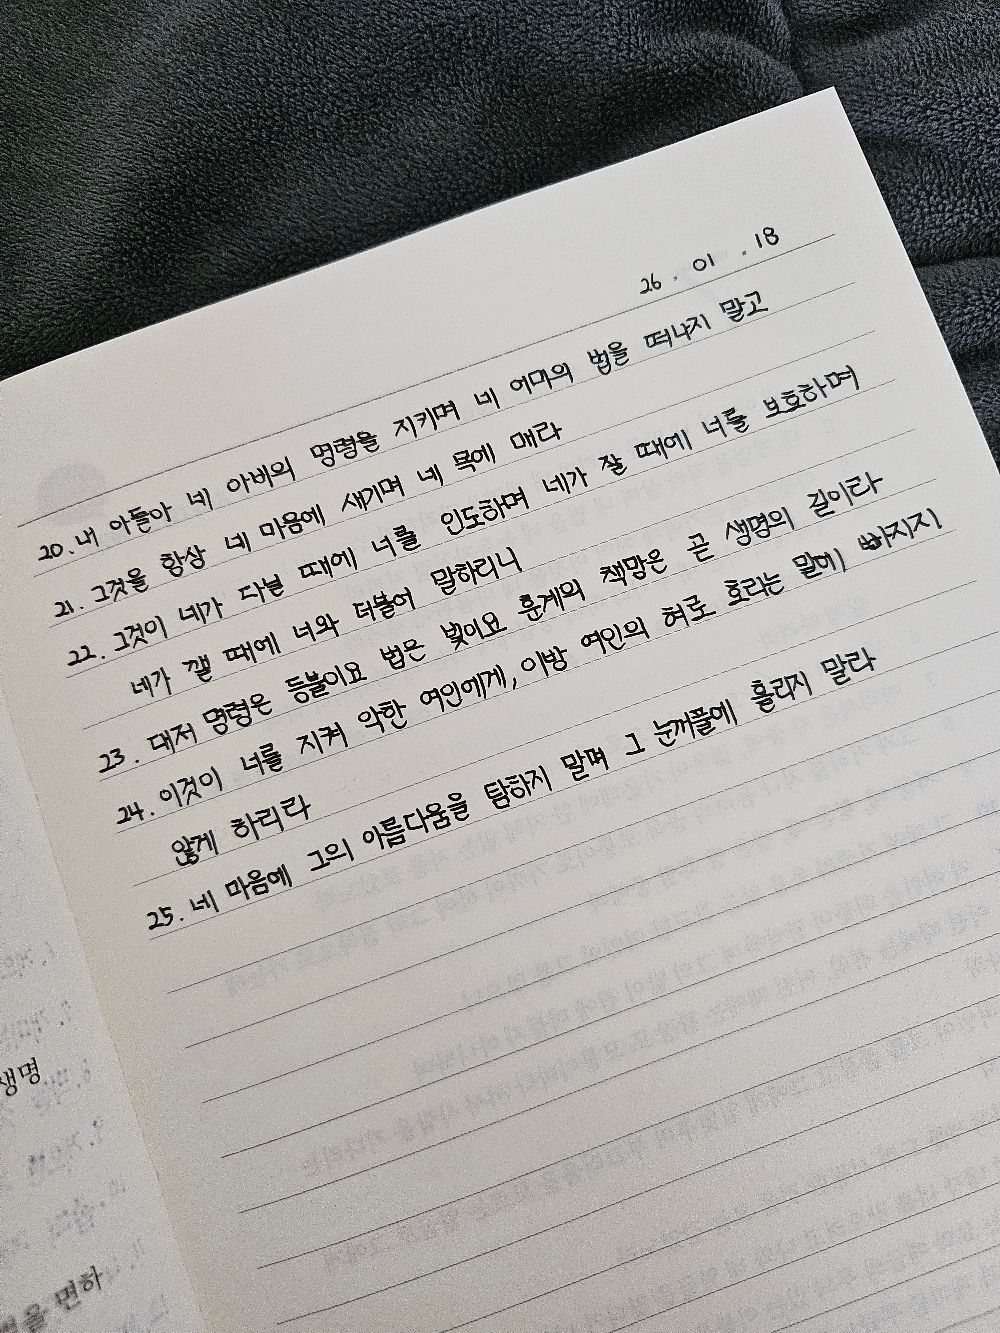 26. 01 .18
20. 내 아들아 네 아비의 명령을 지키며 네 어미의 법을 떠나지 말고
21. 그것을 항상 네 마음에 새기며 네 목에 매라
22. 그것이 네가 다닐 때에 너를 인도하며 네가 잘 때에 너를 보호하며
네가 깰 때에 너와 더불어 말하리니
23. 대저 명령은 등불이요 법은 빛이요 훈계의 책망은 곧 생명의 길이라
24. 이것이 너를 지켜 악한 여인에게, 이방 여인의 혀로 호리는 말에 빠지지
않게 하리라
25. 네 마음에 그의 아름다움을 탐하지 말며 그 눈꺼풀에 홀리지 말라
생명
을 면하